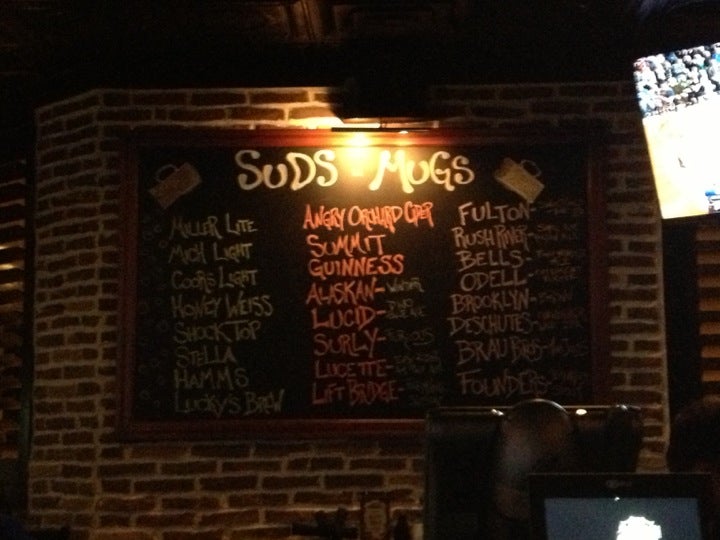 SUDS - MUGS
MILLER LITE
MICH LIGHT
COORS LIGHT
HONEY WEISS
SHOCK TOP
STELLA
HAMMS
LUCKY'S BREW
ANGRY ORCHARD CIDER
SUMMIT
GUINNESS
ALASKAN-
LUCID-
SURLY-
LUCETTE-
LIFT BRIDGE-
FULTON-
RUSH RIVER-
BELLS-
ODELL-
BROOKLYN-
DESCHUTES-
BRAU BROS-
FOUNDERS-